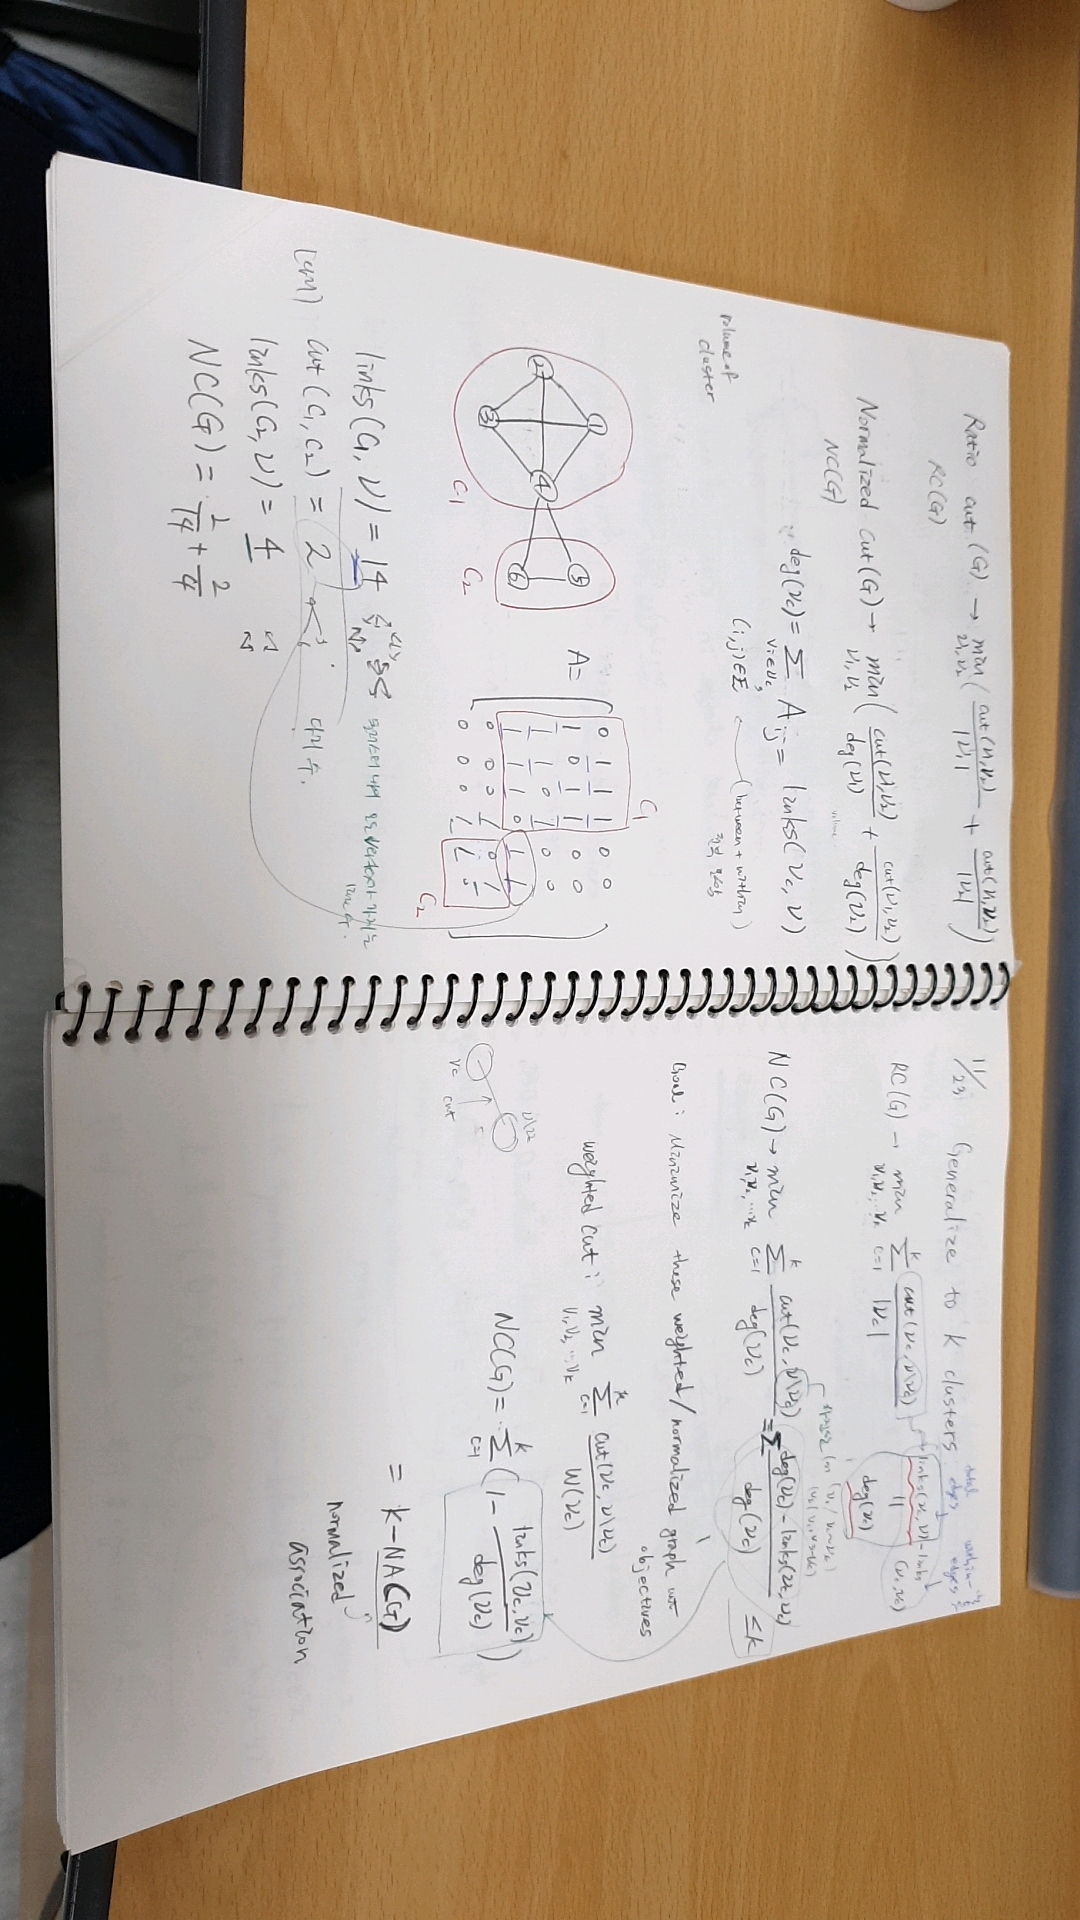 Ratio cut (G) → min_{V1,V2} ( cut(V1,V2) / |V1| + cut(V1,V2) / |V2| )
RC(G)
Normalized cut(G) → min_{V1,V2} ( cut(V1,V2) / deg(V1) + cut(V1,V2) / deg(V2) )
NC(G)
volume
∵ deg(Vc) = Σ_{Vi∈Vc, (i,j)∈E} A_ij = links(Vc, V)
(between + within)
전부 포함
volume of
cluster
1
2
3
4
5
6
C1
C2
C1
A =
0 1 1 1 0 0
1 0 1 1 0 0
1 1 0 1 0 0
1 1 1 0 1 1
0 0 0 1 0 1
0 0 0 1 1 0
C2
links(C1, V) = 14
cut(C1, C2) = 2
4
5
6
다리 수.
links(C2, V) = 4
NC(G) = 2/14 + 2/4
11/23 Generalize to K clusters
total edges
within-
edges
RC(G) → min_{V1,V2,...Vk} Σ_{c=1}^{k} cut(Vc, V\Vc) / |Vc|
links(Vc, V) - links (Vc, Vc)
||
deg(Vc)
NC(G) → min_{V1,V2,...Vc} Σ_{c=1}^{k} cut(Vc, V\Vc) / deg(Vc) = Σ deg(Vc) - links(Vc, Vc) / deg(Vc) ≤ k
Goal: Minimize these weighted/normalized graph cut
objectives
weighted cut: min_{V1,V2,...Vk} Σ_{c=1}^{k} cut(Vc, V\Vc) / W(Vc)
V\Vc
Vc
cut
NC(G) = Σ_{c=1}^{k} ( 1 - links(Vc, Vc) / deg(Vc) )
= k - NA(G)
normalized
association